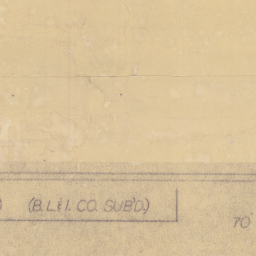 ) (B. L. & I. CO. SUB'D.)
70'